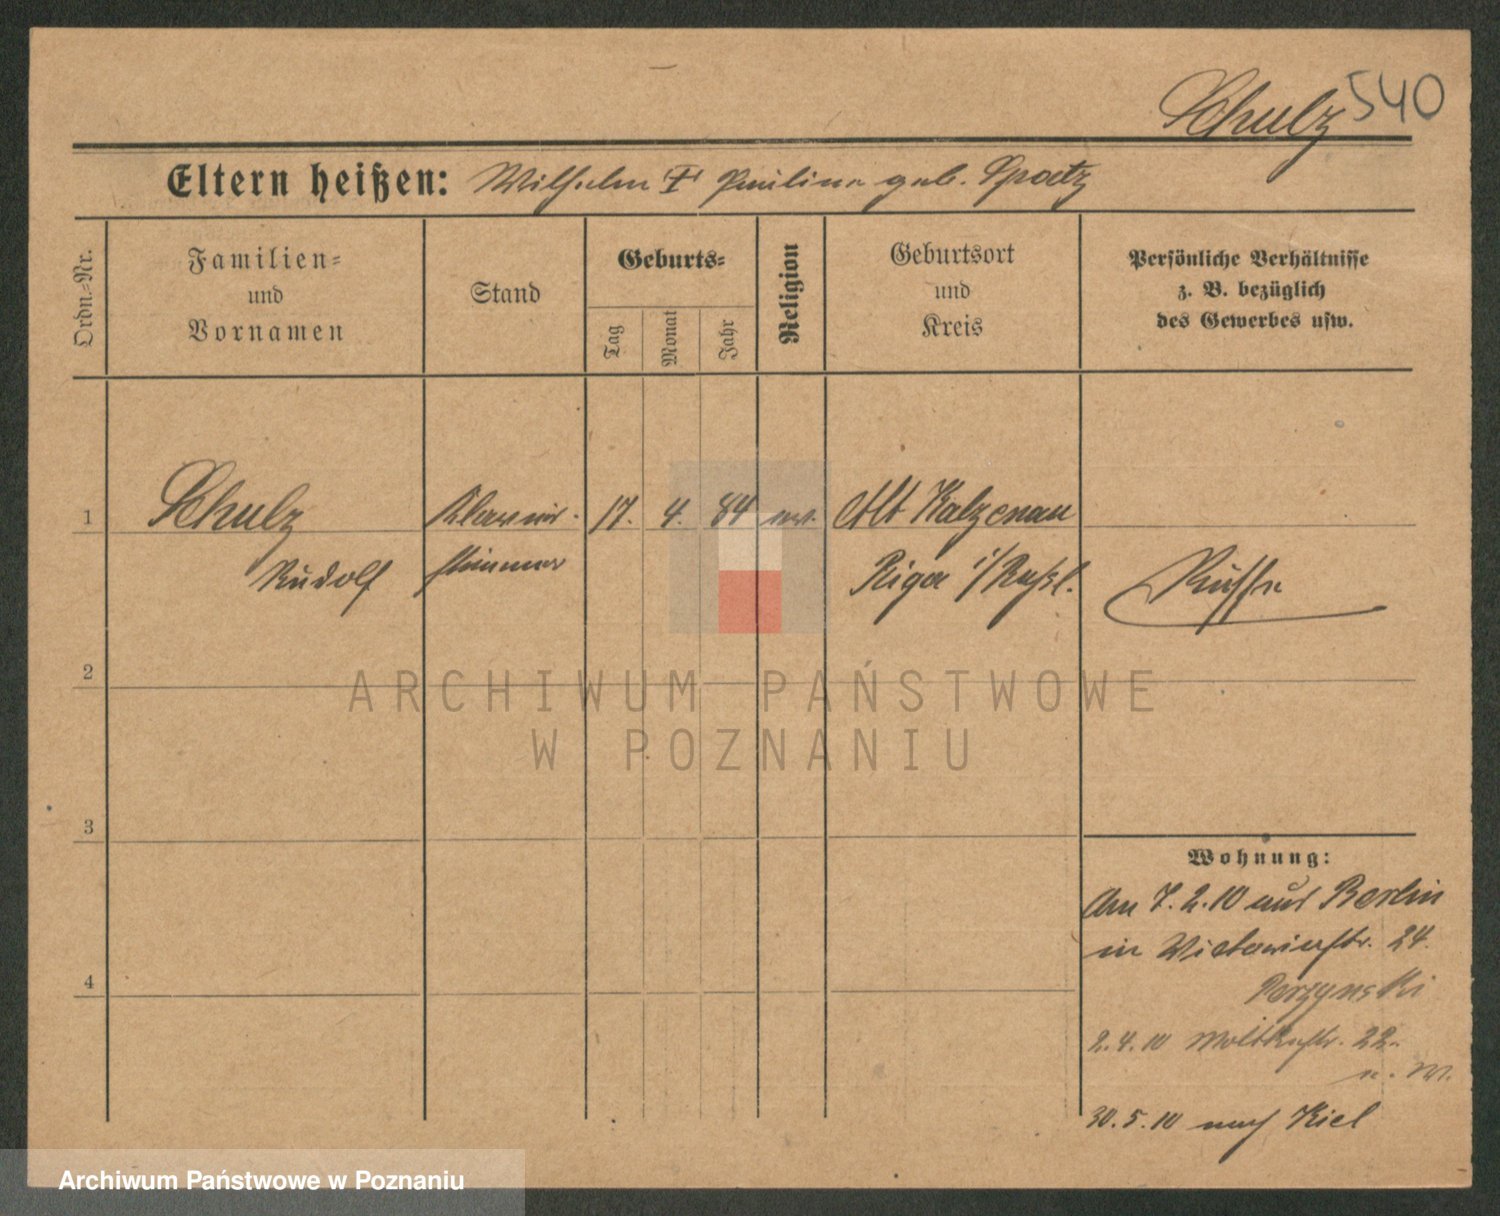 Schulz 540
Eltern heißen: Wilhelm u. Pauline geb. Spaetz
Ordn.-Nr.
Familien-
und
Vornamen
Stand
Geburts-
Tag
Monat
Jahr
Religion
Geburtsort
und
Kreis
Persönliche Verhältnisse
z. B. bezüglich
des Gewerbes usw.
1 Schulz Klavier- 17. 4. 84 ev. Alt Kalzenau
Rudolf stimmer Riga i/Rußl. Russe
2
3
4
Wohnung:
Am 7.2.10 aus Berlin
in Victoriastr. 24.
Perzynski
2.4.10 Moltkestr. 22.
30.5.10 nach Kiel
ARCHIWUM PAŃSTWOWE
W POZNANIU
Archiwum Państwowe w Poznaniu